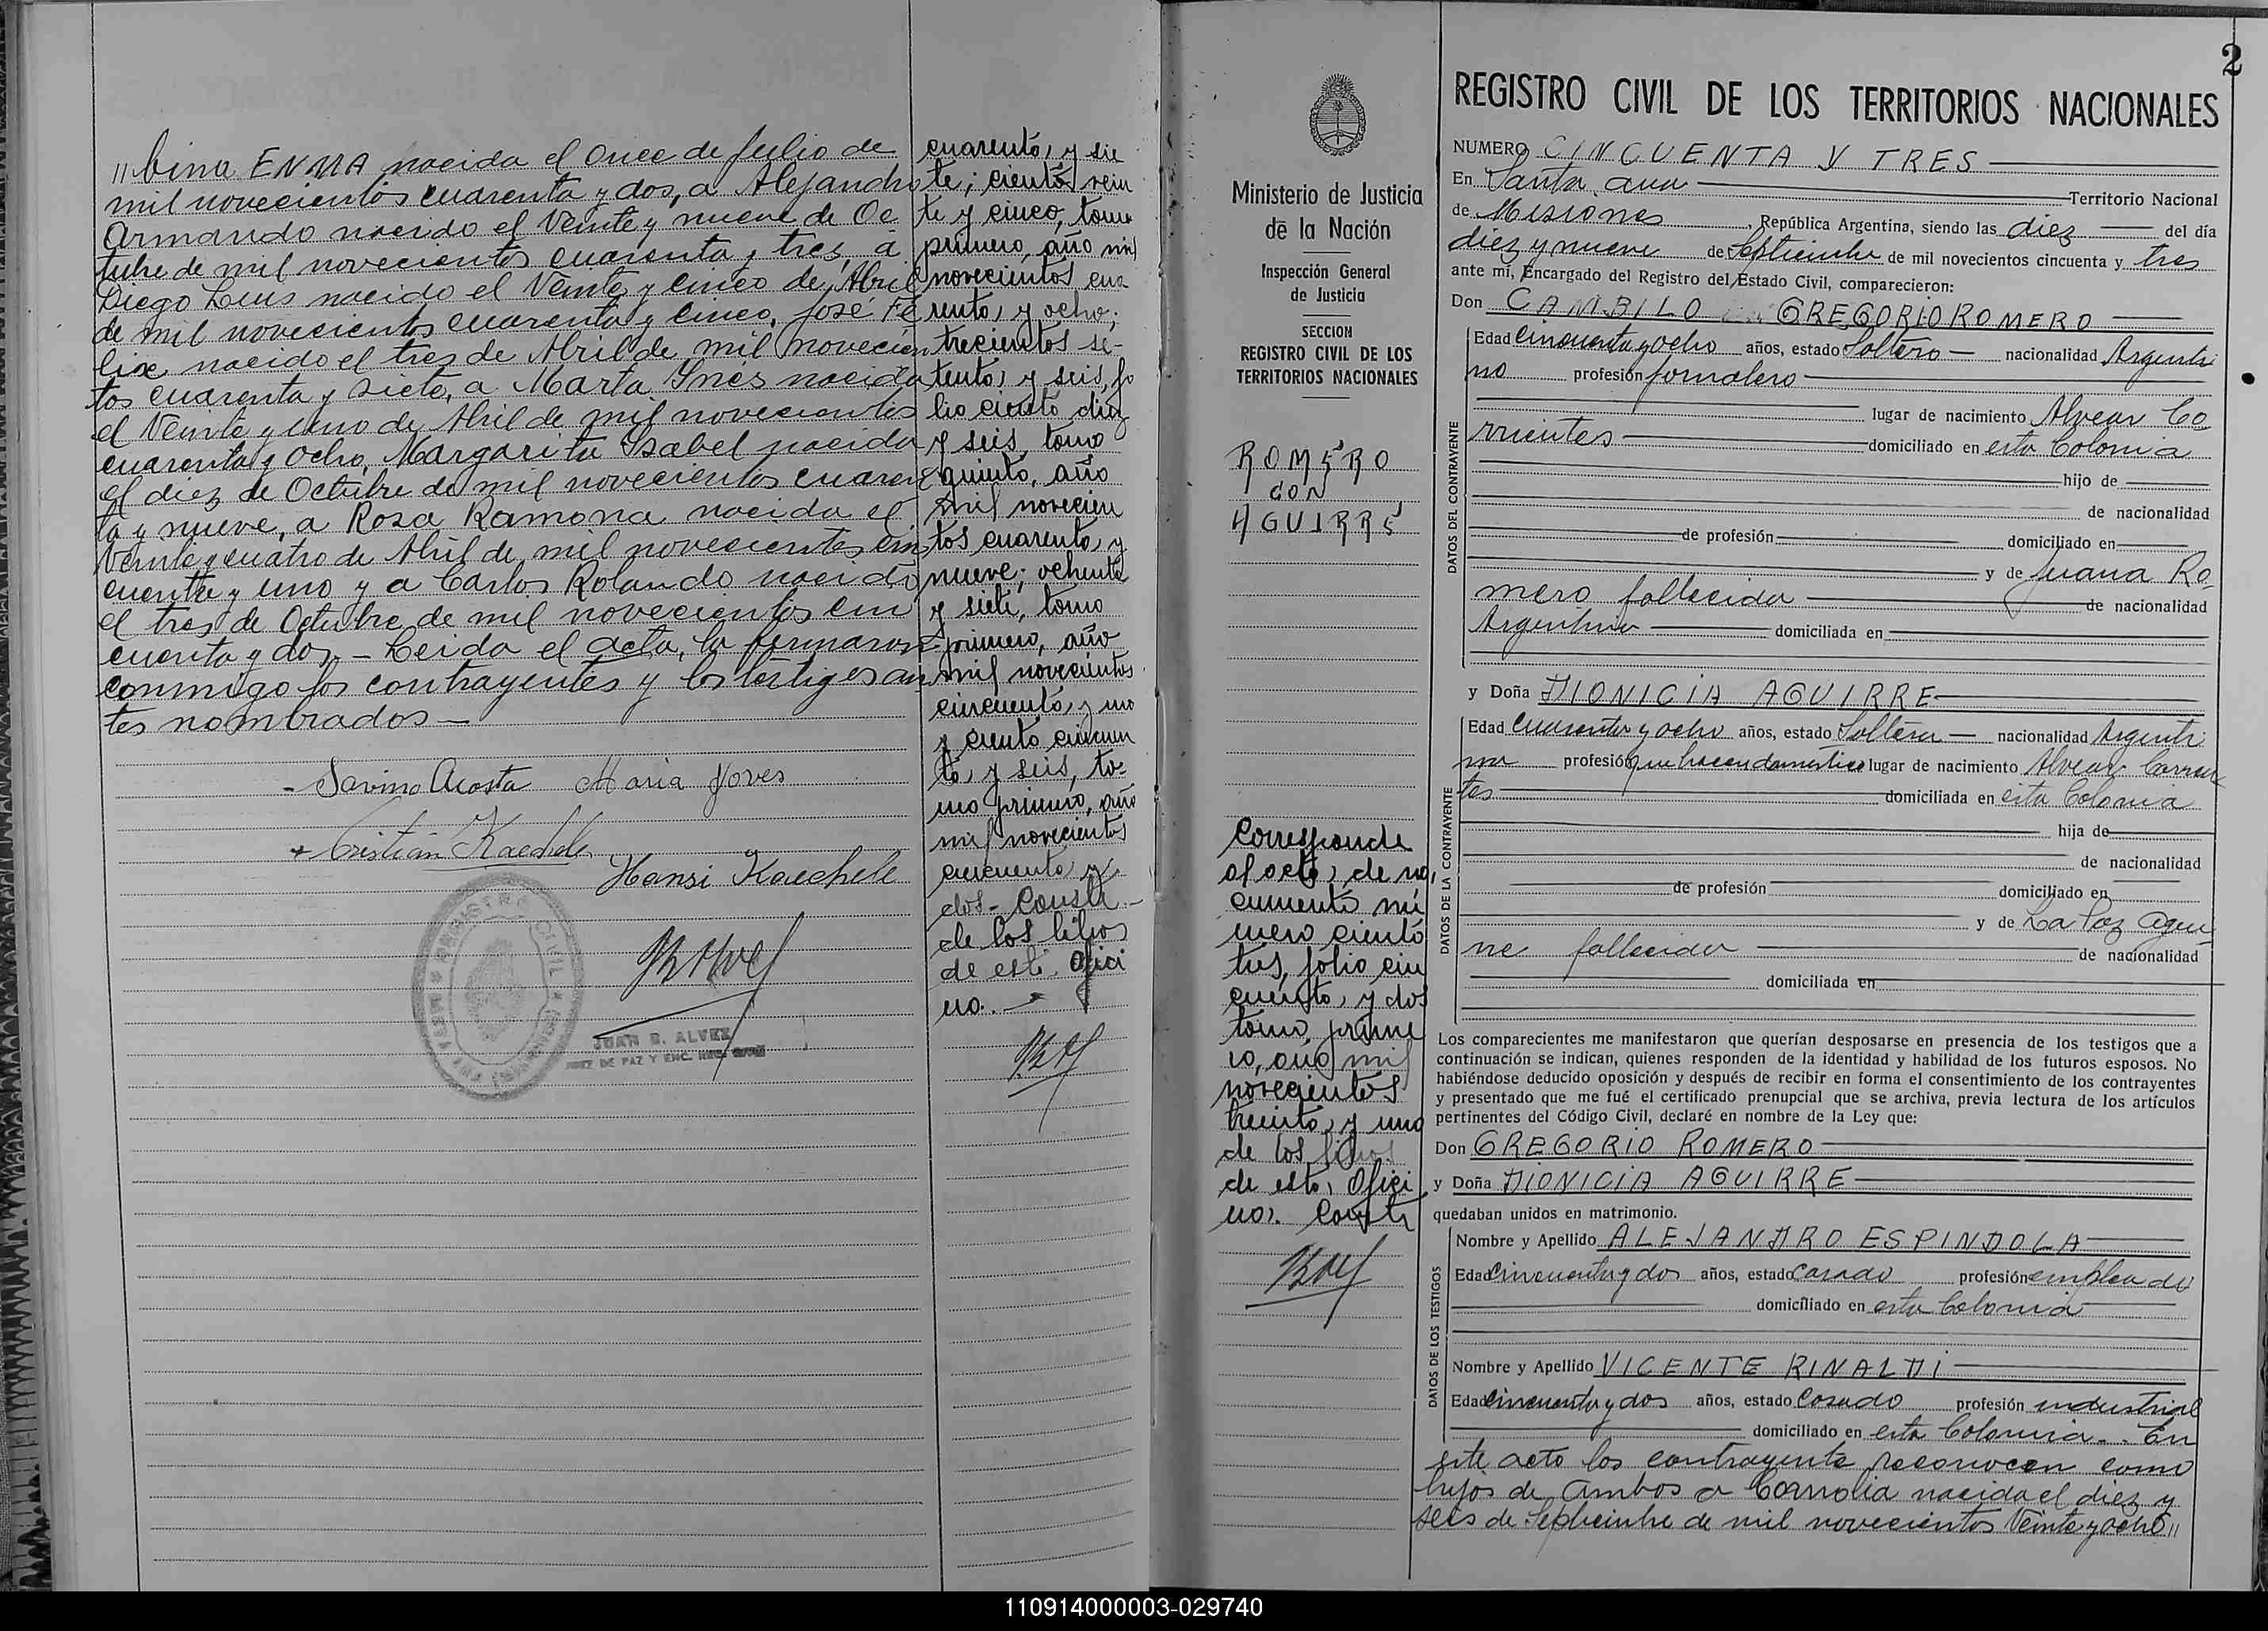 " bina ENMA nacida el Once de Julio de
mil novecientos cuarenta y dos, a Alejandro
Armando nacido el Veinte y nueve de Oc
tubre de mil novecientos cuarenta y tres, a
Diego Luis nacido el Veinte y cinco de Abril
de mil novecientos cuarenta y cinco, José Fé
lix nacido el tres de Abril de mil novecien
tos cuarenta y siete, a Marta Inés nacida
el Veinte y uno de Abril de mil novecientos
cuarenta y ocho, Margarita Isabel nacida
el diez de Octubre de mil novecientos cuaren
ta y nueve, a Rosa Ramona nacida el
Veinte y cuatro de Abril de mil novecientos cin
cuenta y uno y a Carlos Rolando nacido
el tres de Octubre de mil novecientos cin
cuenta y dos. - Leida el acta, la firmaron
conmigo los contrayentes y los testigos an
tes nombrados -
- Savino Acosta María Yoves
+ Cristián Kaechele
Hansi Kaechele
REGISTRO CIVIL
JUAN B. ALVEZ
JUEZ DE PAZ Y ENC. REG. CIVIL
cuarenta y sie
te; ciento vein
te y cinco, tomo
primero, año mil
novecientos cua
renta y ocho;
trecientos se-
tenta y seis, fo
lio ciento diez
y seis, tomo
quinto, año
mil novecien
tos cuarenta y
nueve; ochenta
y siete, tomo
primero, año
mil novecientos
cincuenta y uno
y ciento cincuen
ta y seis, to-
mo primero, año
mil novecientos
cincuenta y
dos - Consta -
de los libros
de esta Ofici
na. -
2
Ministerio de Justicia
de la Nación
Inspección General
de Justicia
SECCION
REGISTRO CIVIL DE LOS
TERRITORIOS NACIONALES
ROMERO
CON
AGUIRRE
Corresponde
al acta de na,
cimiento nú
mero ciento
tres, folio cin
cuenta y dos
tomo prime
ro, año mil
novecientos
treinta y uno
de los libros
de esta Ofici
na. Consta
REGISTRO CIVIL DE LOS TERRITORIOS NACIONALES
NUMERO CINCUENTA Y TRES
En Santa Ana Territorio Nacional
de Misiones, República Argentina, siendo las diez del día
diez y nueve de Septiembre de mil novecientos cincuenta y tres
ante mí, Encargado del Registro del Estado Civil, comparecieron:
Don CAMBILO GREGORIO ROMERO
DATOS DEL CONTRAYENTE
Edad cincuenta y ocho años, estado Soltero - nacionalidad Argenti
no profesión jornalero
lugar de nacimiento Alvear Co
rrientes domiciliado en esta Colonia
hijo de
de nacionalidad
de profesión domiciliado en
y de Juana Ro-
mero fallecida de nacionalidad
Argentina domiciliada en
y Doña DIONICIA AGUIRRE
DATOS DE LA CONTRAYENTE
Edad cuarenta y ocho años, estado Soltera - nacionalidad Argenti
na profesión quehacer domestico lugar de nacimiento Alvear Corrien
tes domiciliada en esta Colonia
hija de
de nacionalidad
de profesión domiciliado en
y de La Paz Agui
rre fallecida de nacionalidad
domiciliada en
Los comparecientes me manifestaron que querían desposarse en presencia de los testigos que a
continuación se indican, quienes responden de la identidad y habilidad de los futuros esposos. No
habiéndose deducido oposición y después de recibir en forma el consentimiento de los contrayentes
y presentado que me fué el certificado prenupcial que se archiva, previa lectura de los artículos
pertinentes del Código Civil, declaré en nombre de la Ley que:
Don GREGORIO ROMERO
y Doña DIONICIA AGUIRRE
quedaban unidos en matrimonio.
DATOS DE LOS TESTIGOS
Nombre y Apellido ALEJANDRO ESPINDOLA
Edad cincuenta y dos años, estado casado profesión empleado
domiciliado en esta Colonia
Nombre y Apellido VICENTE RINALDI
Edad cincuenta y dos años, estado Casado profesión industrial
domiciliado en esta Colonia. - En
este acto los contrayente reconocen como
hijos de Ambos a Cornolia nacida el diez y
seis de Septiembre de mil novecientos Veinte y ocho "
110914000003-029740